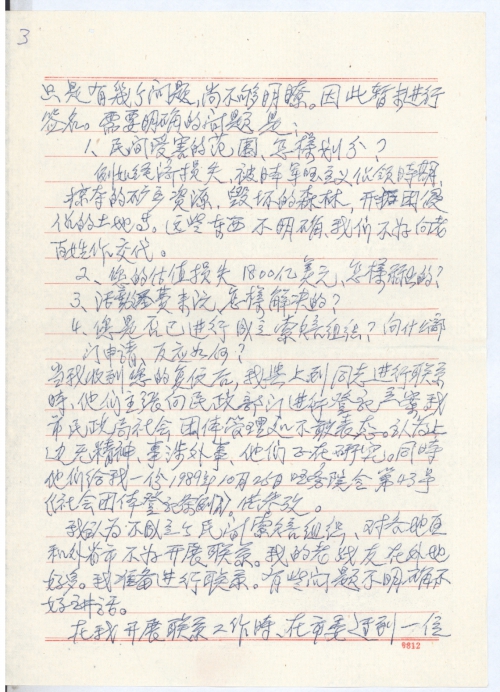 3
只是有几个问题,尚不够明瞭。因此暂未进行
签名。需要明确的问题是:
1、民间受害的范围,怎样划分?
例如经济损失,被日本军国主义占领時期,
掠夺的矿产资源,毁坏的森林,开拓团侵
佔的土地等。这些东西不明确,我们不好向老
百姓作交代。
2、您的估值损失1800亿美元,怎样算出的?
3、活动经费来沅,怎样解决的?
4、您是否已进行成立索赔组织?向什么部
门申请,反应如何?
当我收到您的复信后,我与上到同志进行联系
時,他们主张向民政部门进行登记备案,我
市民政局社会团体管理处不敢表态。认为上
边无精神,事涉外事,他们正在研究。同時
他们给我一份1989年10月26日国务院令第43号
《社会团体登记条例》,供参改。
我认为不成立个民间索赔组织,对各地区
和外省市不好开展联系。我的老战友在外地
好多。我准备进行联系。有些问题不明确不
好讲话。
在我开展联系工作時,在市委遇到一位
0812